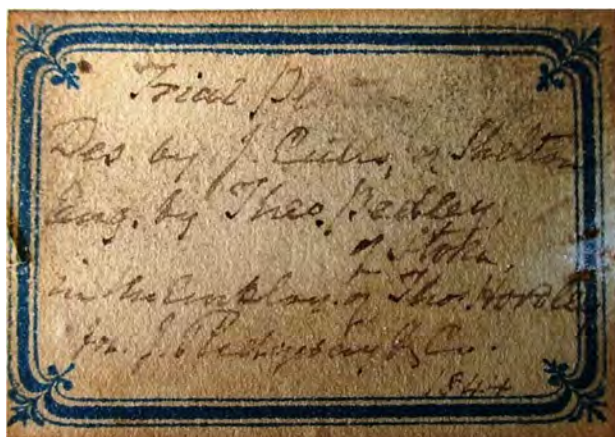 Trial
Des. by J. of Shelton
Eng. by Theo. Pedley,
of Stoke,
in the employ of Thos. Hordley
for J. Ridgway & Co.